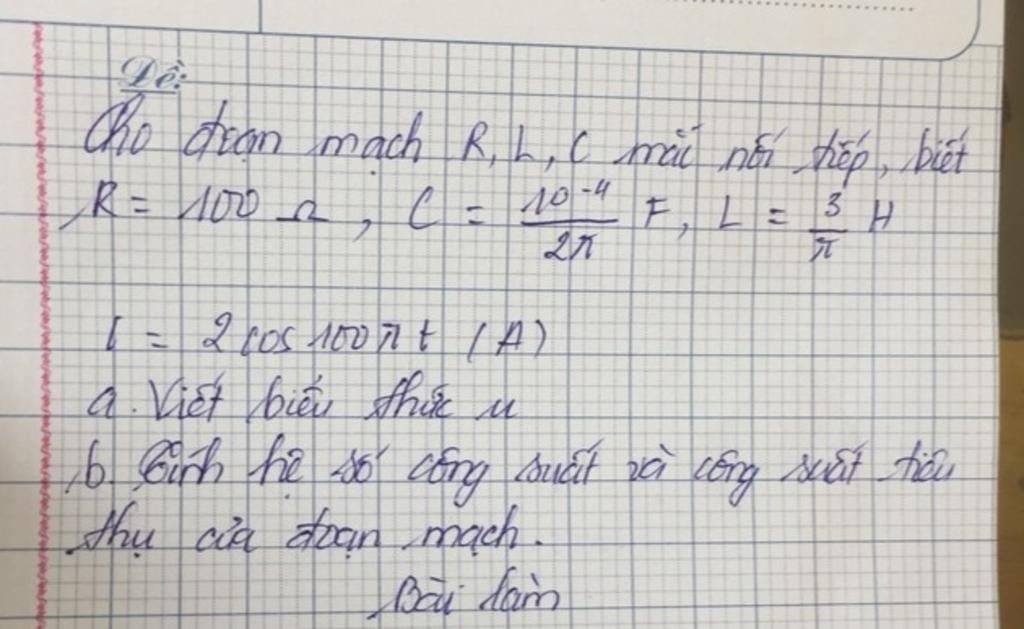 Đề:
Cho đoạn mạch R, L, C mắc nối tiếp, biết
R = 100 Ω, C = \frac{10^{-4}}{2π} F, L = \frac{3}{π} H
i = 2cos100πt (A)
a. Viết biểu thức u
b. Tính hệ số công suất và công suất tiêu
thụ của đoạn mạch.
Bài làm